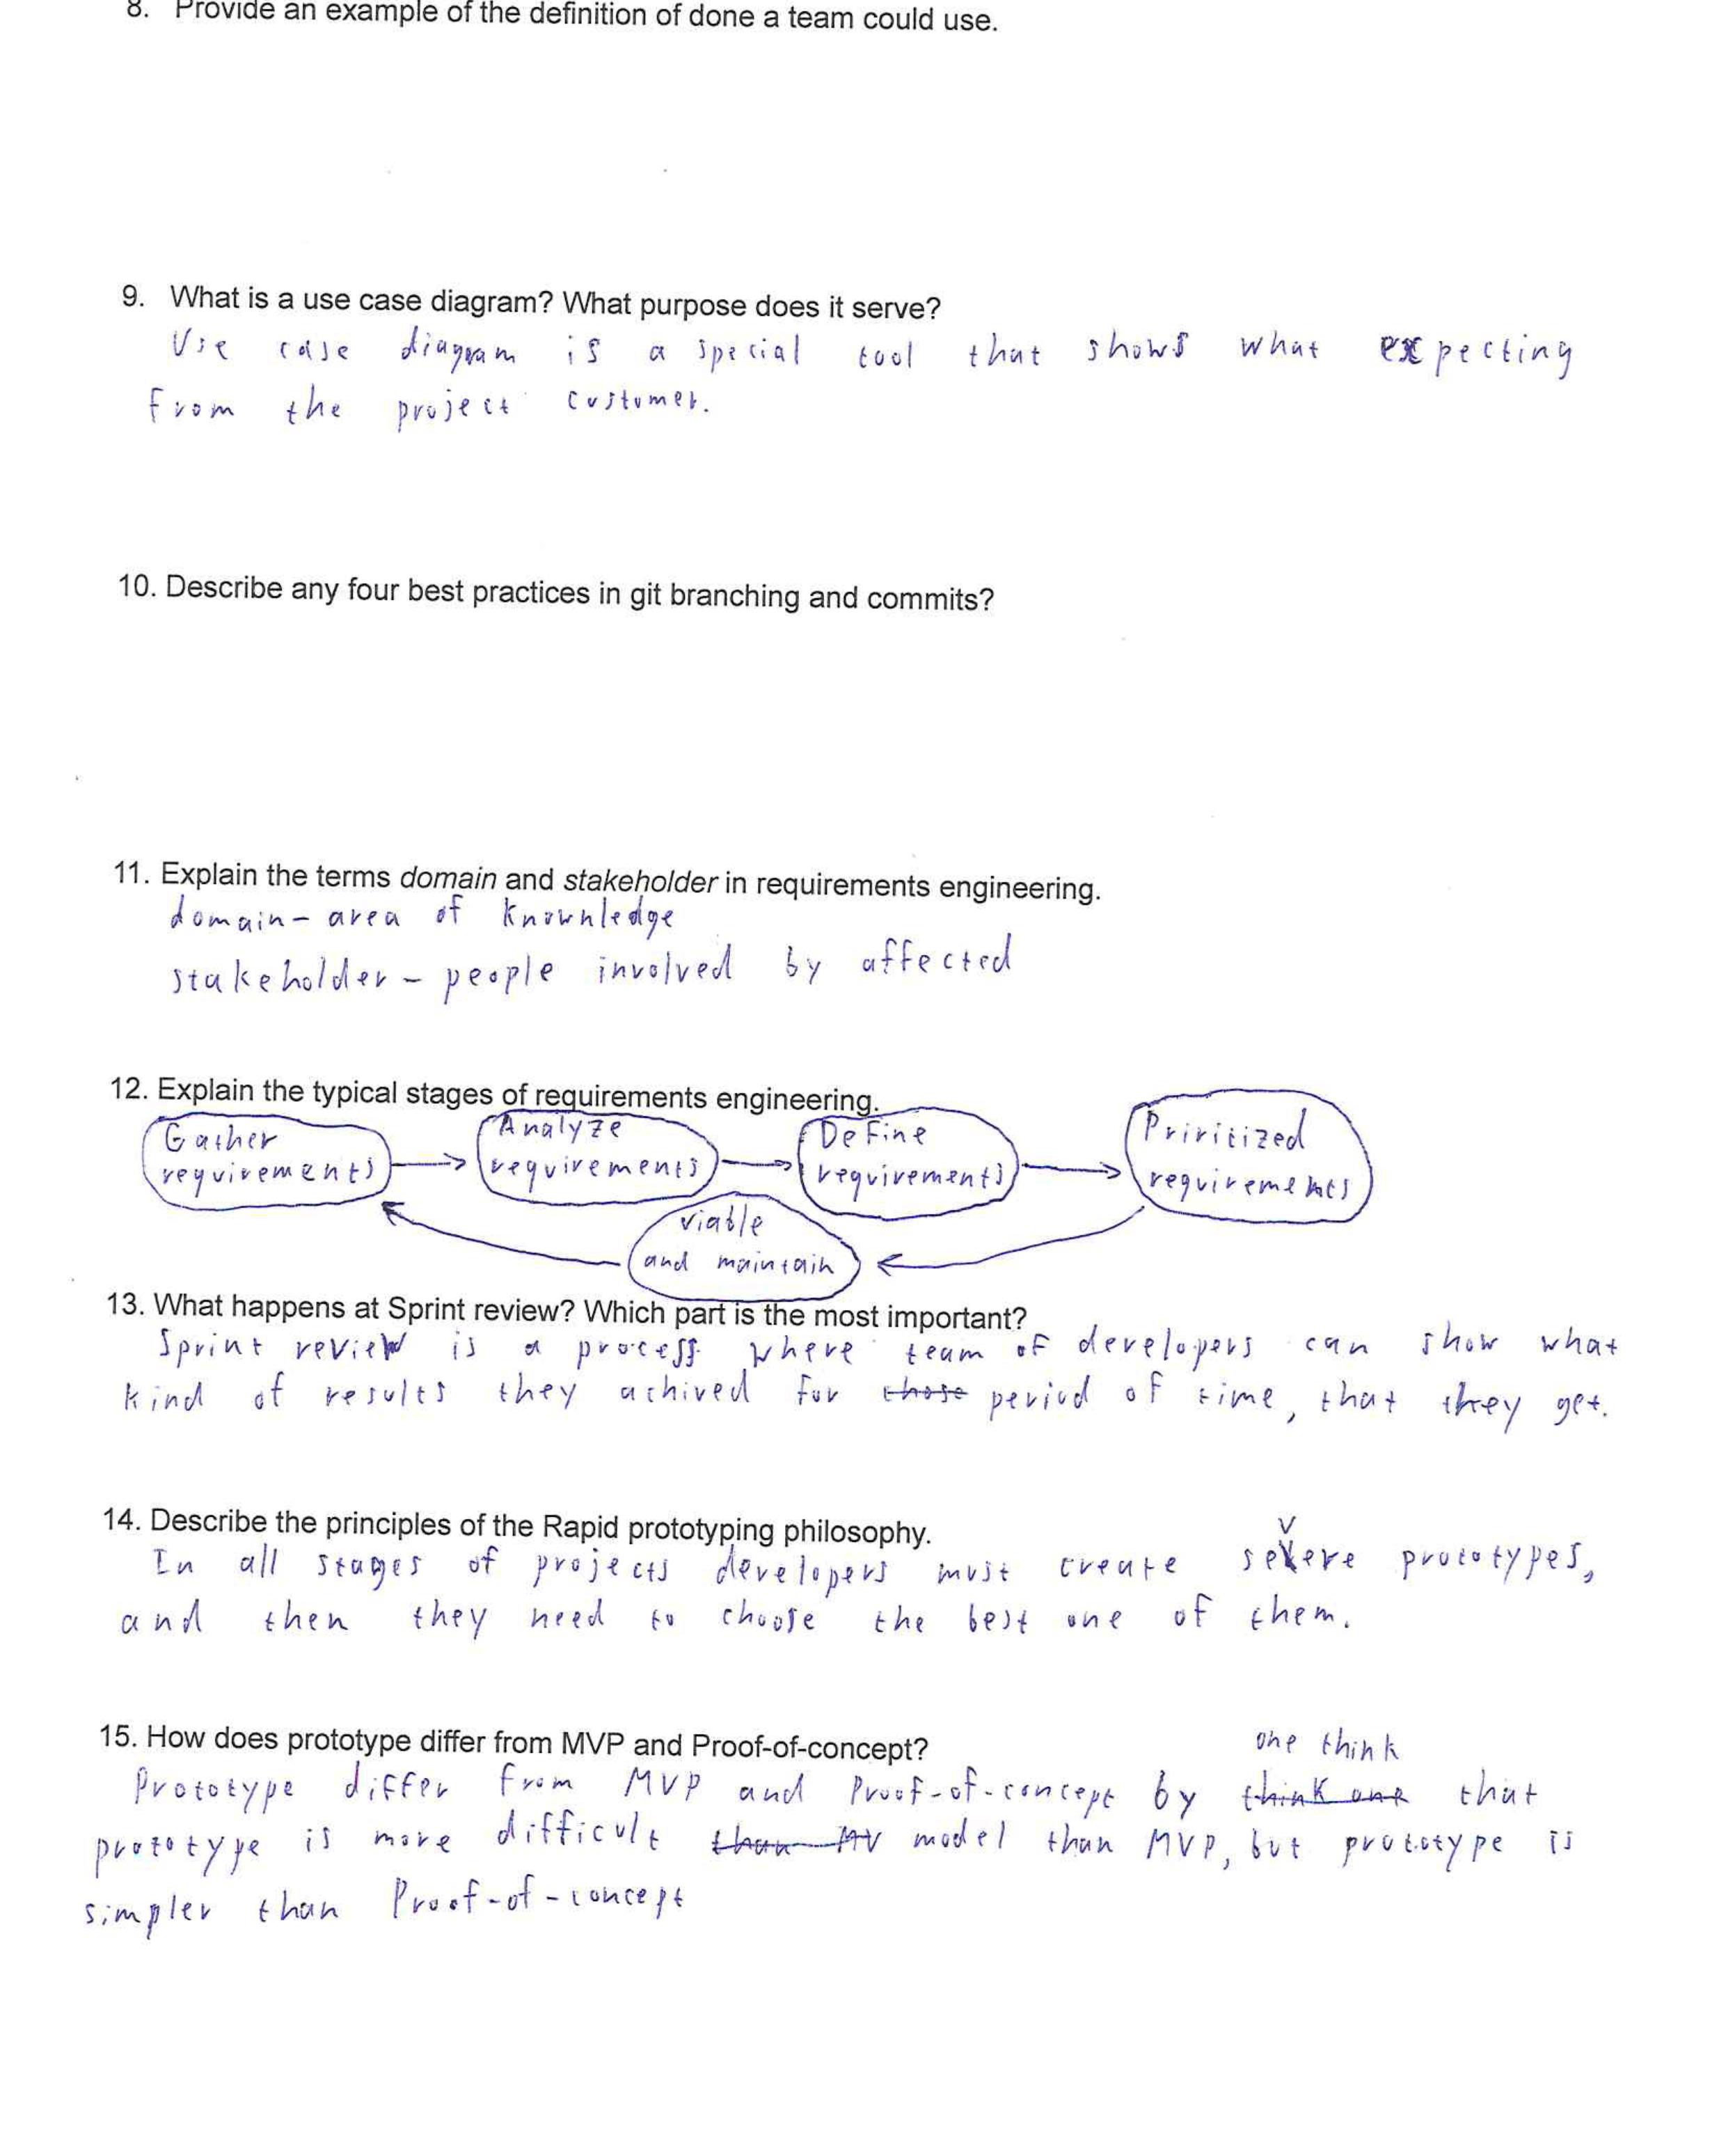 8. Provide an example of the definition of done a team could use.
9. What is a use case diagram? What purpose does it serve?
Use case diagram is a special tool that shows what expecting
from the project customer.
10. Describe any four best practices in git branching and commits?
11. Explain the terms domain and stakeholder in requirements engineering.
domain - area of knownledge
stakeholder - people involved by affected
12. Explain the typical stages of requirements engineering.
Gather
requirements
Analyze
requirements
Define
requirements
Priritized
requirements
viable
and maintain
13. What happens at Sprint review? Which part is the most important?
Sprint review is a process where team of developers can show what
kind of results they achived for those period of time, that they get.
14. Describe the principles of the Rapid prototyping philosophy.
v
In all stages of projects developers must create severe prototypes,
and then they need to choose the best one of them.
15. How does prototype differ from MVP and Proof-of-concept?
one think
Prototype differ from MVP and Proof-of-concept by think one that
prototype is more difficult than MV model than MVP, but prototype is
simpler than Proof-of-concept